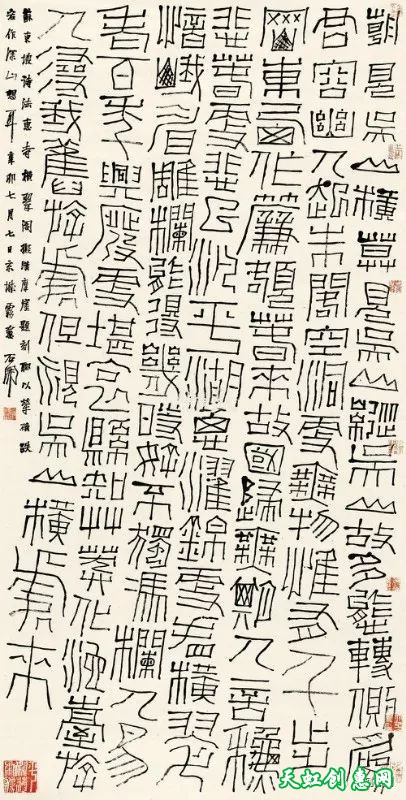 朝見吳山橫暮見吳山縱吳山故多態轉側為
君容幽人起朱閣空洞更無物惟有千步
岡東西作簾額春來故國歸無期人言秋
悲春更悲已泛平湖思濯錦更看橫翠
憶峨眉雕欄能得幾時好不獨憑欄人易
老百年興廢更堪哀懸知草莽化池臺游
人尋我舊游處但覓吳山橫處來
蘇東坡詩法惠寺橫翠閣擬摩崖題刻聊以筆
宕作深山想耳辛卯七月七日京石開
天虹创意网